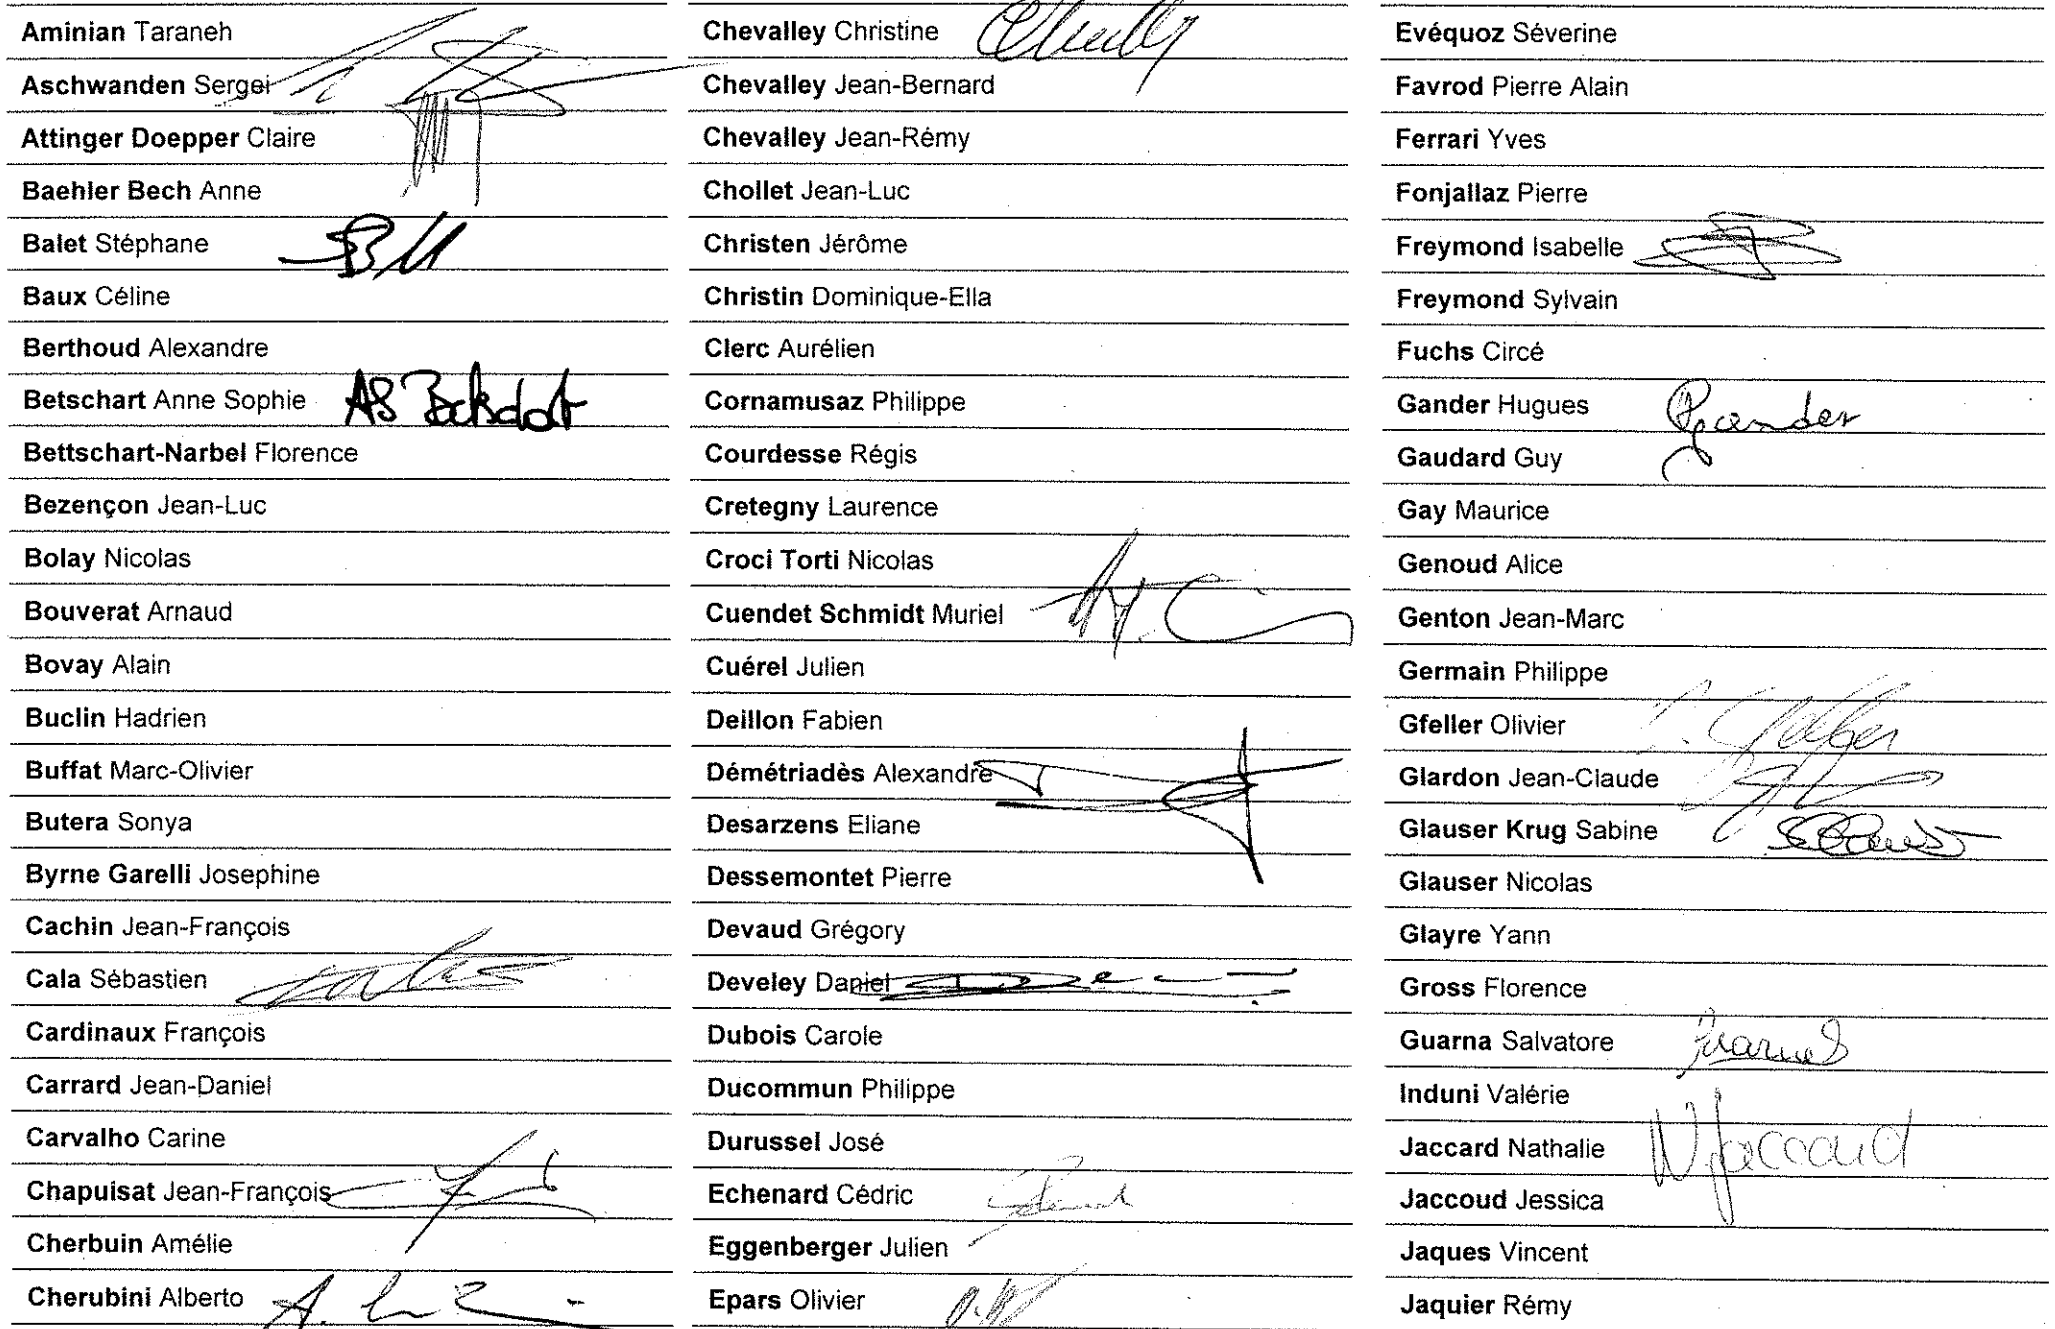 Aminian Taraneh
Aschwanden Sergei
Attinger Doepper Claire
Baehler Bech Anne
Balet Stéphane
Baux Céline
Berthoud Alexandre
Betschart Anne Sophie
Bettschart-Narbel Florence
Bezençon Jean-Luc
Bolay Nicolas
Bouverat Arnaud
Bovay Alain
Buclin Hadrien
Buffat Marc-Olivier
Butera Sonya
Byrne Garelli Josephine
Cachin Jean-François
Cala Sébastien
Cardinaux François
Carrard Jean-Daniel
Carvalho Carine
Chapuisat Jean-François
Cherbuin Amélie
Cherubini Alberto
Chevalley Christine
Chevalley Jean-Bernard
Chevalley Jean-Rémy
Chollet Jean-Luc
Christen Jérôme
Christin Dominique-Ella
Clerc Aurélien
Cornamusaz Philippe
Courdesse Régis
Cretegny Laurence
Croci Torti Nicolas
Cuendet Schmidt Muriel
Cuérel Julien
Deillon Fabien
Démétriadès Alexandre
Desarzens Eliane
Dessemontet Pierre
Devaud Grégory
Develey Daniel
Dubois Carole
Ducommun Philippe
Durussel José
Echenard Cédric
Eggenberger Julien
Epars Olivier
Evéquoz Séverine
Favrod Pierre Alain
Ferrari Yves
Fonjallaz Pierre
Freymond Isabelle
Freymond Sylvain
Fuchs Circé
Gander Hugues
Gaudard Guy
Gay Maurice
Genoud Alice
Genton Jean-Marc
Germain Philippe
Gfeller Olivier
Glardon Jean-Claude
Glauser Krug Sabine
Glauser Nicolas
Glayre Yann
Gross Florence
Guarna Salvatore
Induni Valérie
Jaccard Nathalie N. Jaccard
Jaccoud Jessica
Jaques Vincent
Jaquier Rémy